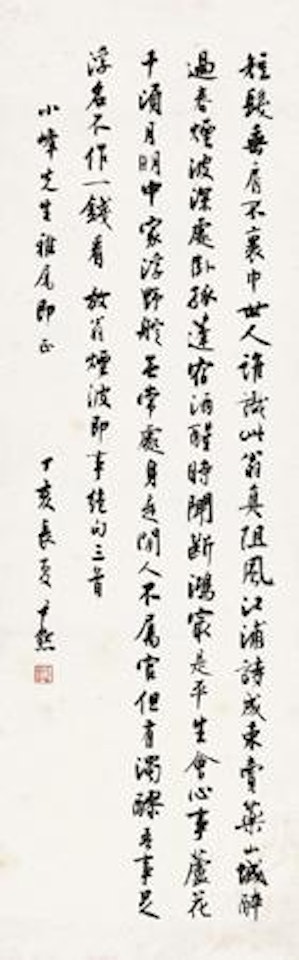 短髮垂肩不裹巾世人誰識此翁真阻風江浦詩成束賣藥山城醉
過春煙波深處臥孤蓬宿酒醒時聞斷鴻最是平生會心事蘆花
千頃月明中家浮野艇无常處身是閒人不属官但有濁醪吾事足
浮名不作一錢看 放翁煙波即事絕句三首
小峰先生雅属即正 丁亥長夏 尹默